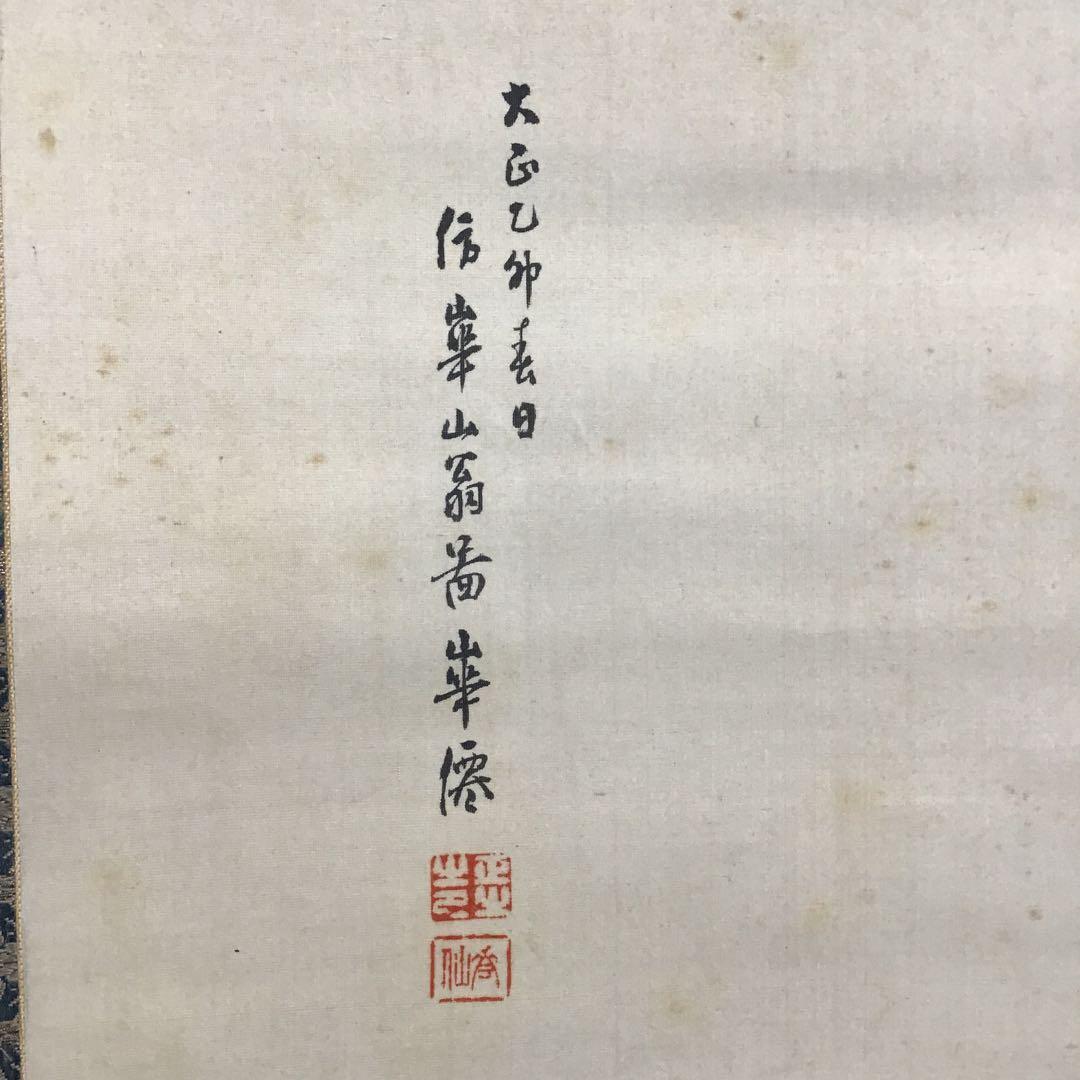 大正乙卯春日
仿崋山翁啚崋僊